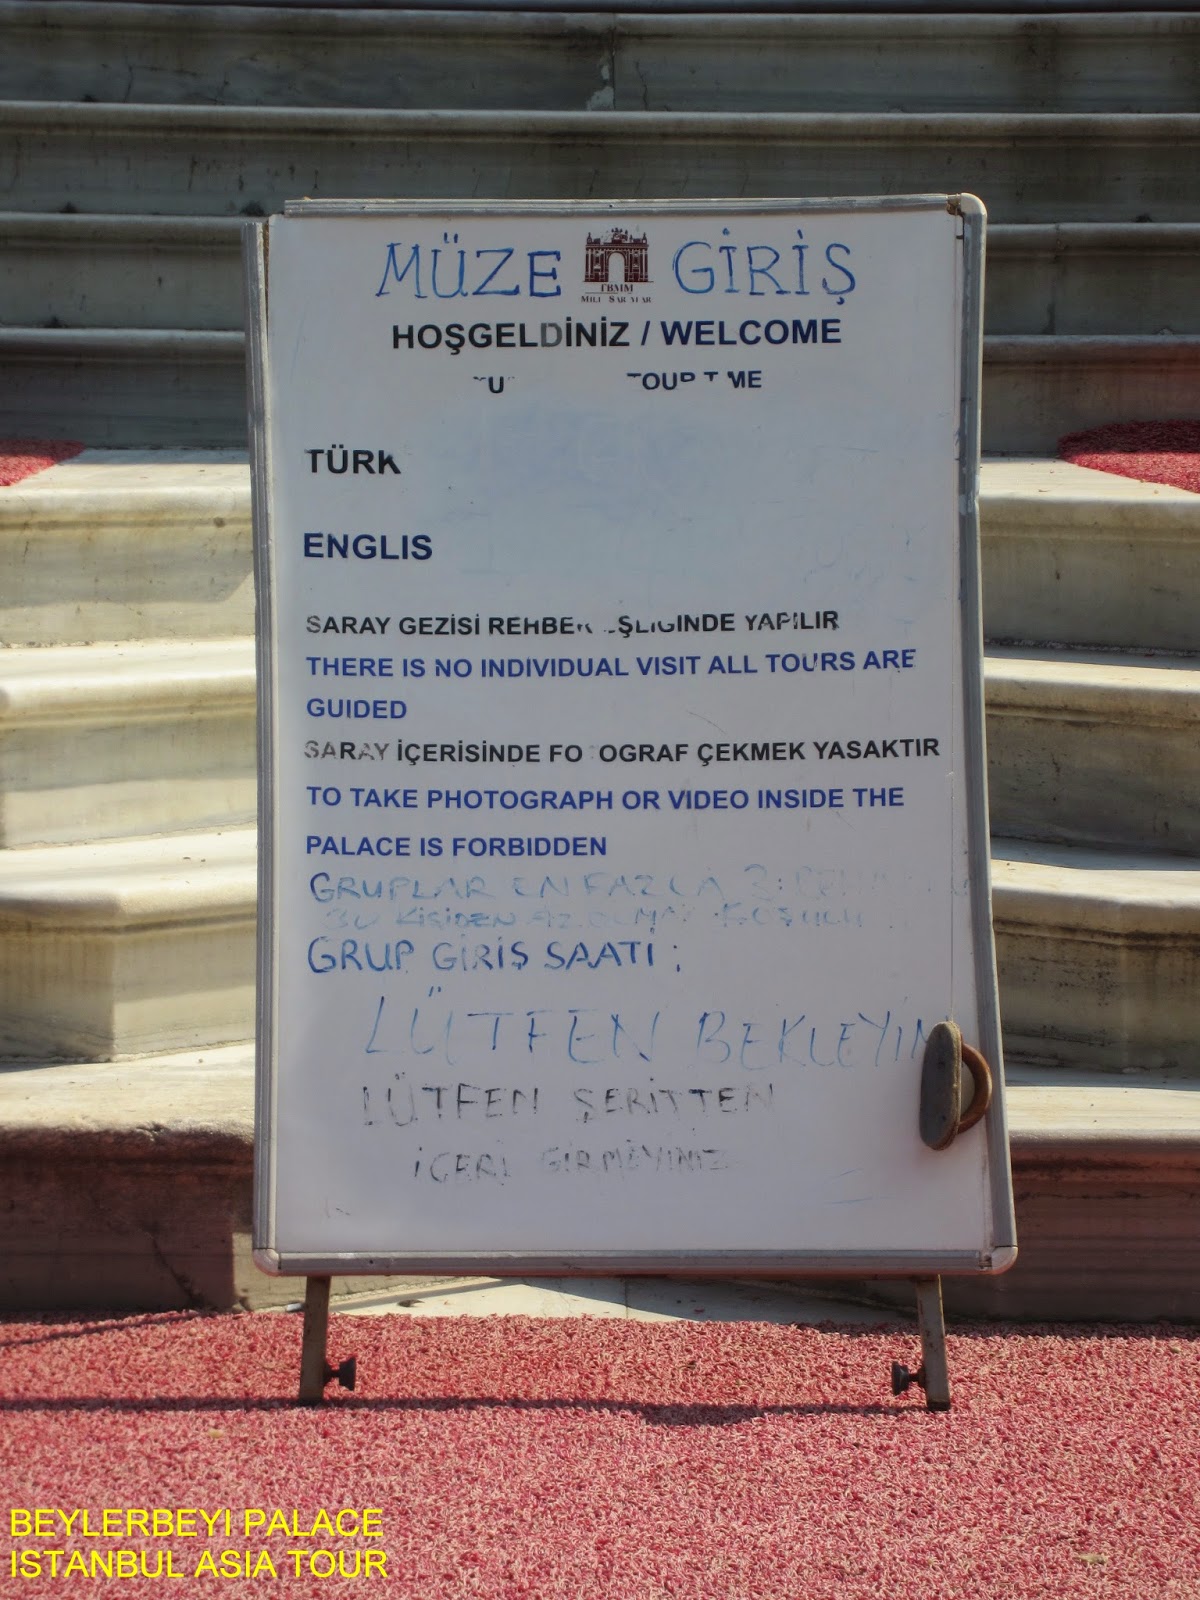 MÜZE GİRİŞ
TBMM
HOŞGELDİNİZ / WELCOME
TOUR TIME
TÜRK
ENGLIS
SARAY GEZİSİ REHBER EŞLİĞİNDE YAPILIR
THERE IS NO INDIVIDUAL VISIT ALL TOURS ARE
GUIDED
SARAY İÇERİSİNDE FO OGRAF ÇEKMEK YASAKTIR
TO TAKE PHOTOGRAPH OR VIDEO INSIDE THE
PALACE IS FORBIDDEN
GRUPLAR EN FAZLA
KİŞİDEN
GRUP GİRİŞ SAATİ :
LÜTFEN BEKLEYİN
LÜTFEN ŞERİTTEN
İÇERİ GİRMEYİNİZ
BEYLERBEYI PALACE
ISTANBUL ASIA TOUR